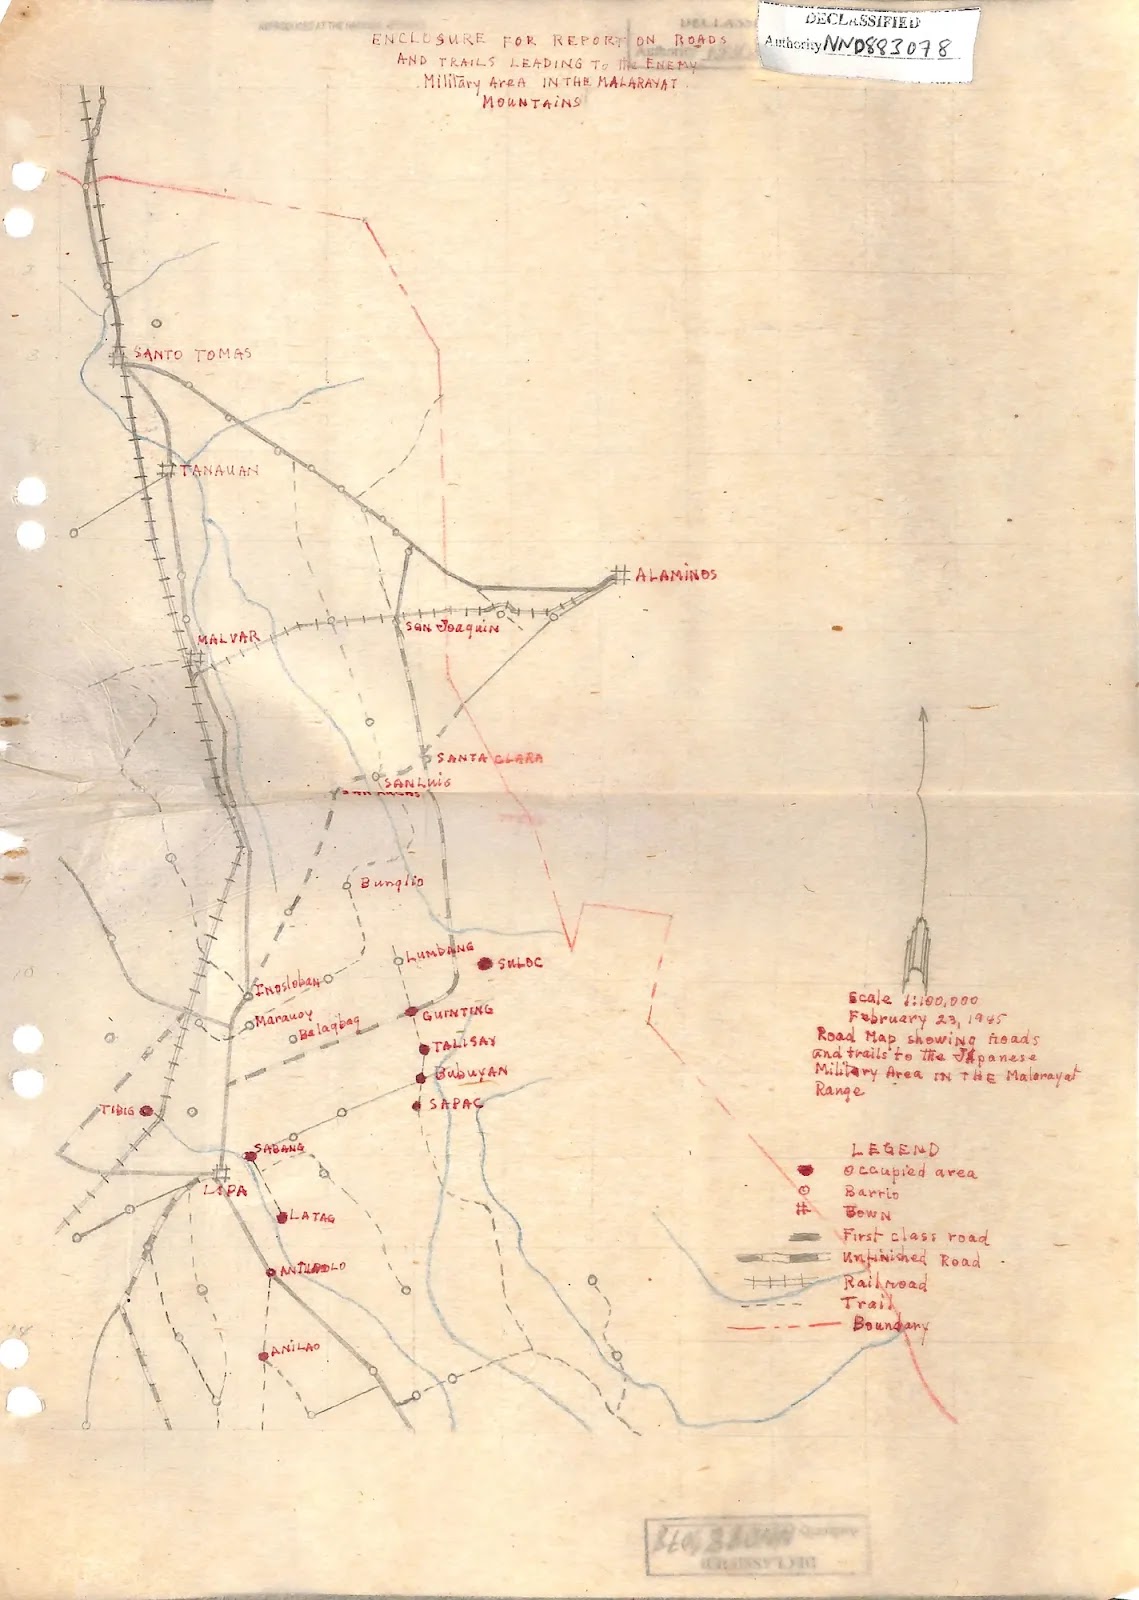 DECLASSIFIED
Authority NND883078
ENCLOSURE FOR REPORT ON ROADS
AND TRAILS LEADING To the ENEMY
Military Area IN THE MALARAYAT
MOUNTAINS
SANTO TOMAS
TANAUAN
ALAMINOS
SAN Joaquin
MALVAR
SANTA CLARA
SAN LUIS
Bunglio
LUMBANG
SULOC
Inosloban
Marauoy
Balagbag
GUINTING
TALISAY
Bubuyan
SAPAC
TIBIG
SABANG
LIPA
LATAG
ANTIPOLO
ANILAO
Scale 1:100,000
February 23, 1945
Road Map showing Roads
and trails to the JApanese
Military Area IN THE Malarayat
Range
LEGEND
occupied area
Barrio
Town
First class road
Unfinished Road
Railroad
Trail
Boundary